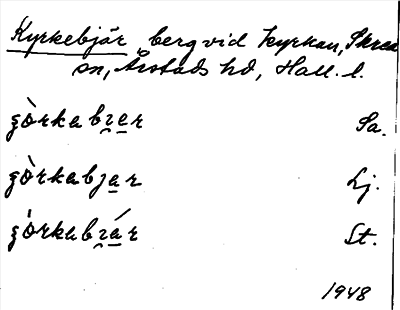 Kyrkebjär, berg vid kyrkan, Skrea
sn, Årstads hd, Hall. l.
Sa.
Lj.
St.
1948